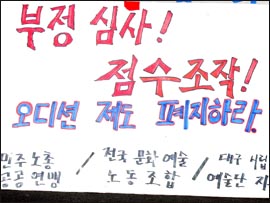 부정 심사!
점수조작!
오디션 제도 폐지하라.
민주노총 / 전국 문화예술 / 대구 시립
공공연맹 노동조합 예술단 지